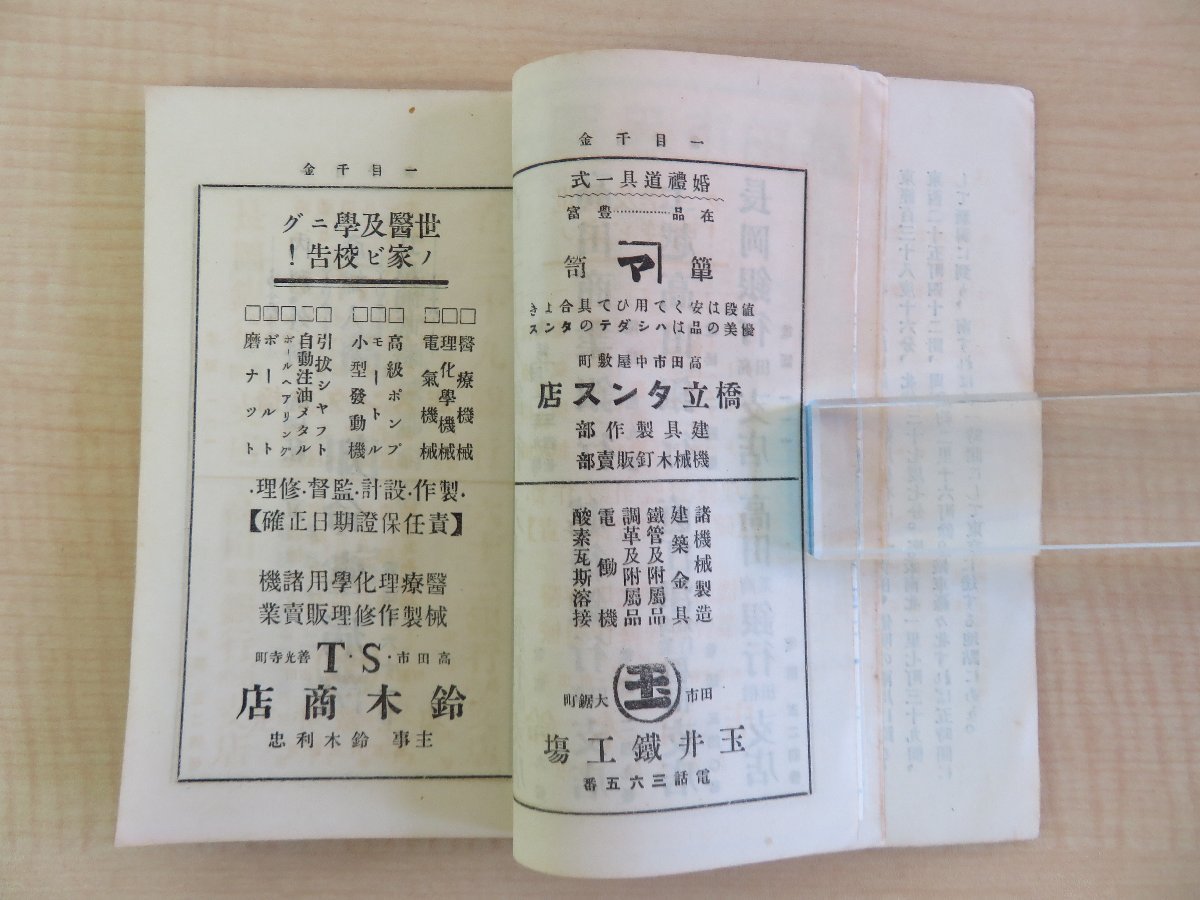 一目千金
婚禮道具一式
在品……豊富
簞マ笥
値段は安くて用ひて具合よき
優美の品はハシダテのタンス
高田市中屋敷町
橋立タンス店
建具製作部
機械木釘販賣部
諸機械製造
建築金具
鐵管及附屬品
調革及附屬品
電働機
酸素瓦斯溶接
田市 玉 大鋸町
玉井鐵工塲
電話三六五番
一目千金
世ノ醫家及ビ學校ニ告グ!
□醫療機械
□理化學機械
□電氣機械
□高級ポンプ
□モートル
□小型發動機
□引拔シャフト
□自動注油メタル
□ボールベアリング
□ボールト
□磨ナット
・製作・設計・監督・修理・
【責任保證期日正確】
醫療理化學用諸機
械製作修理販賣業
高田市・S・T 善光寺町
鈴木商店
主事 鈴木利忠